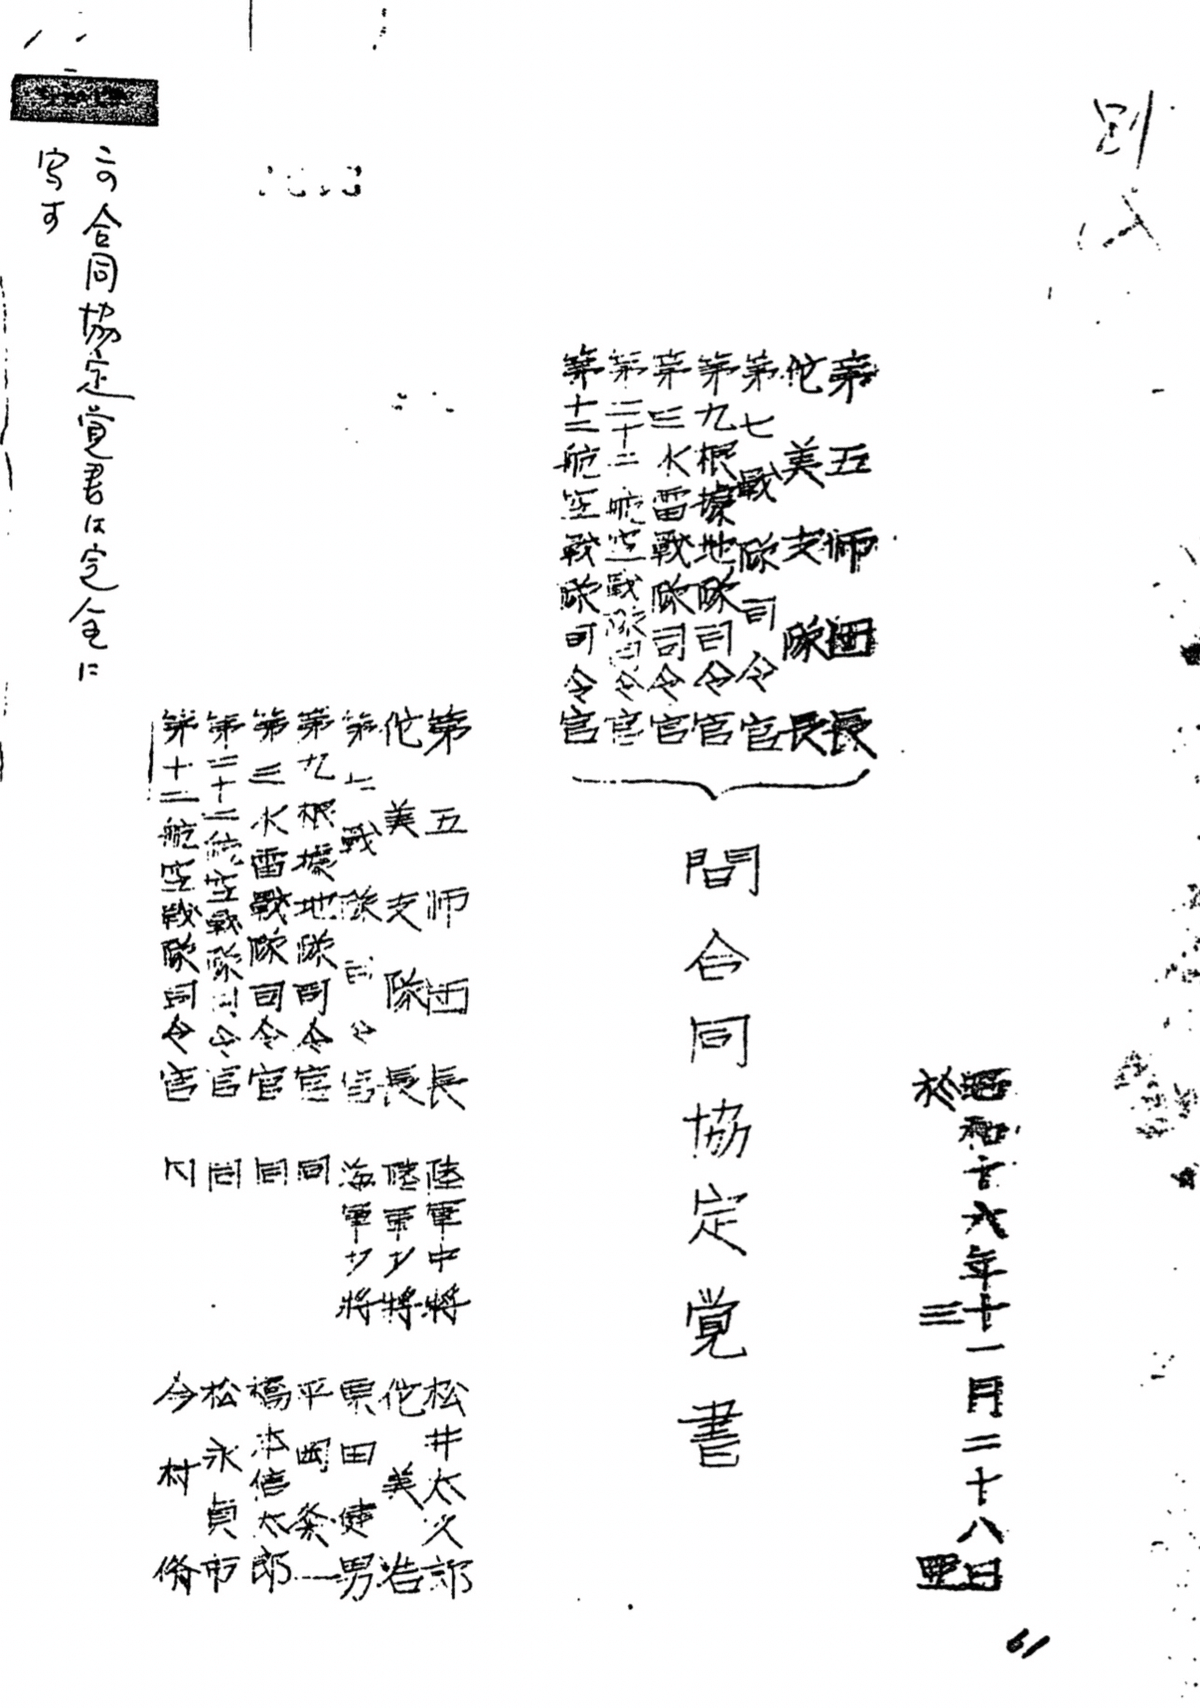 別
昭和十六年十一月二十八日
於三亜
第五師団長
佗美支隊長
第七戰隊司令官
第九根據地隊司令官
第三水雷戰隊司令官
第二十二航空戰隊司令官
第十二航空戰隊司令官
間合同協定覚書
第五師団長 陸軍中將 松井太久郎
佗美支隊長 陸軍少將 佗美浩
第七戰隊司令官 海軍少將 栗田健男
第九根據地隊司令官 同 平岡粂一
第三水雷戰隊司令官 同 橋本信太郎
第二十二航空戰隊司令官 同 松永貞市
第十二航空戰隊司令官 同 今村脩
この合同協定覚書は完全に
写す
61